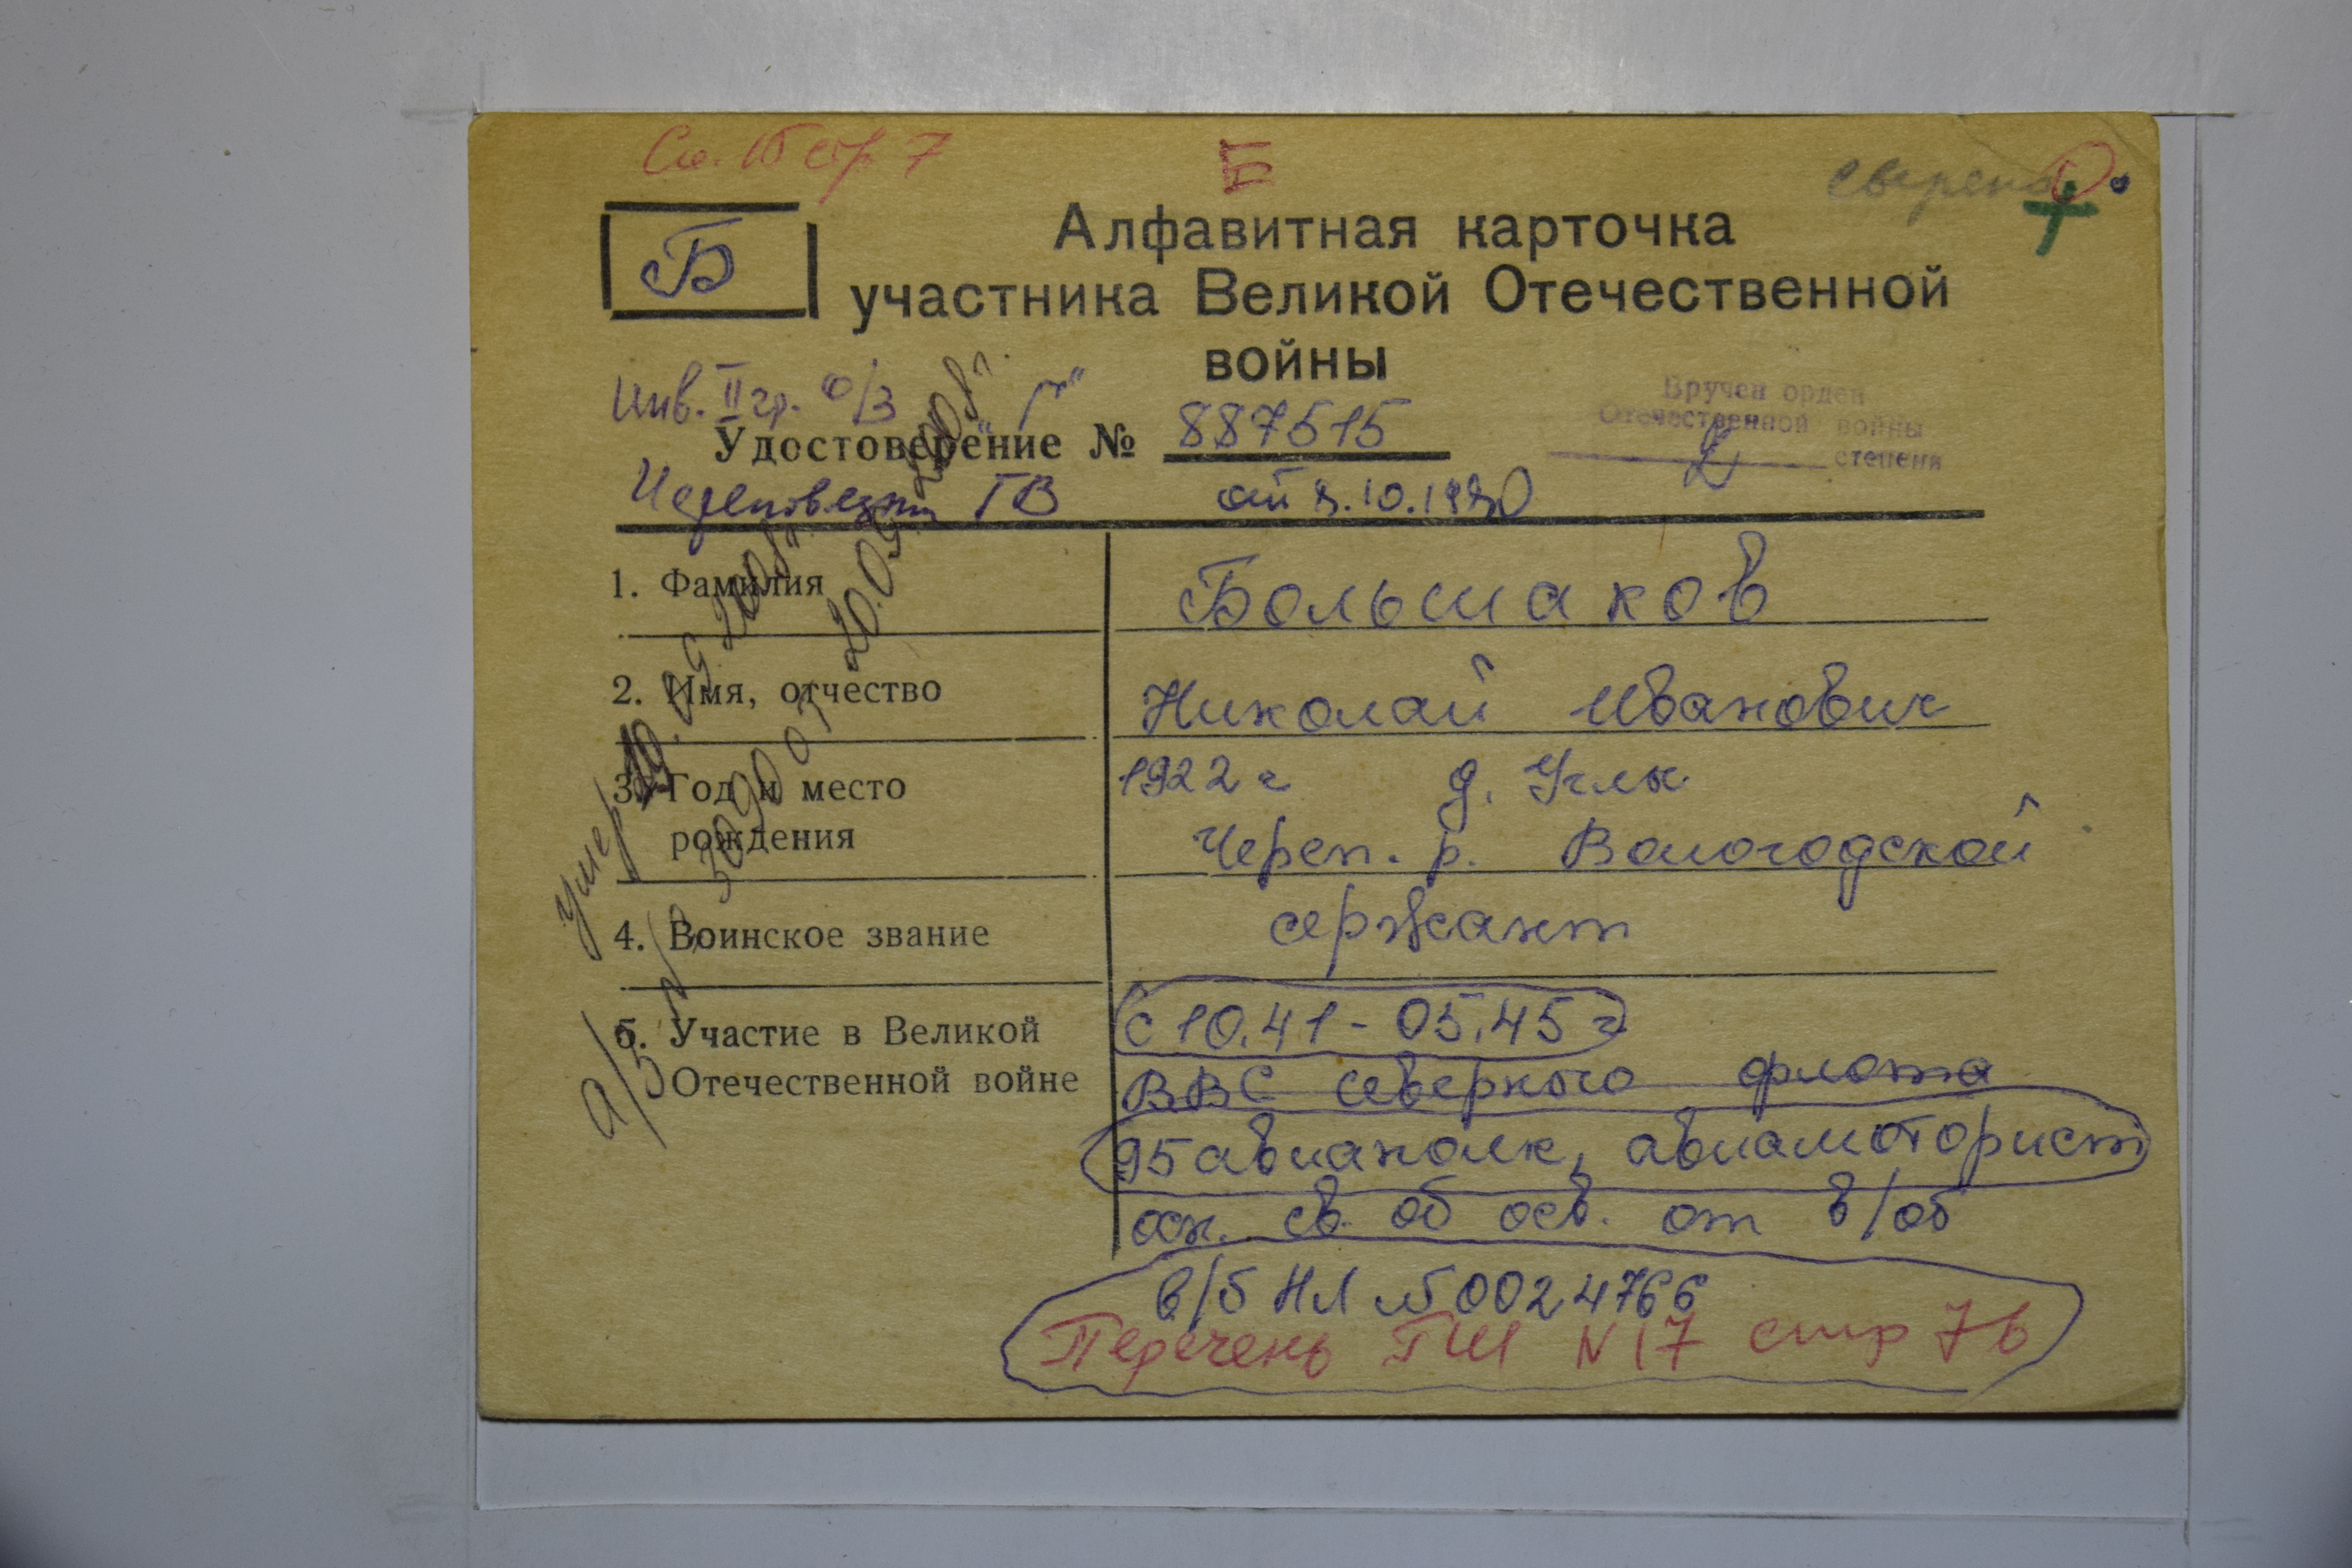 стр 7
Б
сверено
Б
Алфавитная карточка
участника Великой Отечественной
войны
Инв. II гр. о/з "Г"
Вручен орден
Отечественной войны
II степени
Удостоверение № 887515
Череповецкий ГВ от 8.10.1980
1. Фамилия Большаков
2. Имя, отчество Николай Иванович
3. Год и место 1922 г д. Углы
рождения Череп. р. Вологодской
4. Воинское звание сержант
5. Участие в Великой с 10.41 - 05.45 г
Отечественной войне ВВС Северного флота
95 авиаполк, авиамоторист
осн. св. об осв. от в/об
в/б НЛ № 0024766
Перечень ГШ N 17 стр 76
умер 10.09.2008г.
а/з № 3090 от 10.09.2008г.